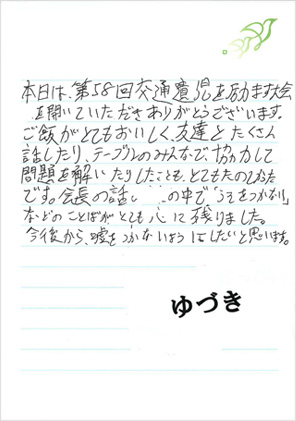 本日は、第58回交通遺児を励ます大会
を開いていただきありがとうございます。
ご飯がとてもおいしく、友達とたくさん
話したり、テーブルのみんなで、協力して
問題を解いたりしたことも、とてもたのしかった
です。会長の話 の中で「うそをつかない」
などのことばがとても心に残りました。
今後から、嘘をつかないようにしたいと思います。
ゆづき